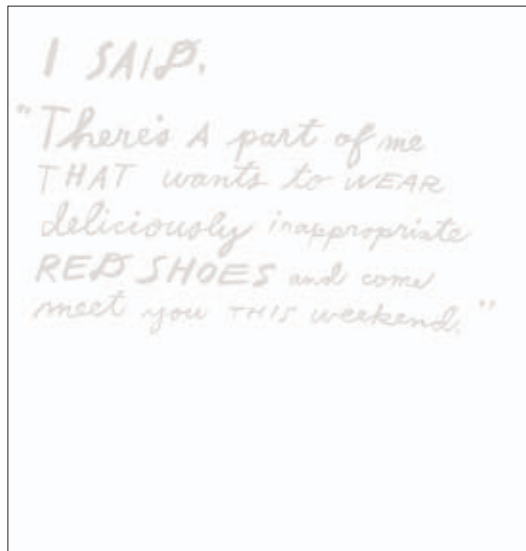 I SAID,
"There's A part of me
THAT wants to WEAR
deliciously inappropriate
RED SHOES and come
meet you THIS weekend."